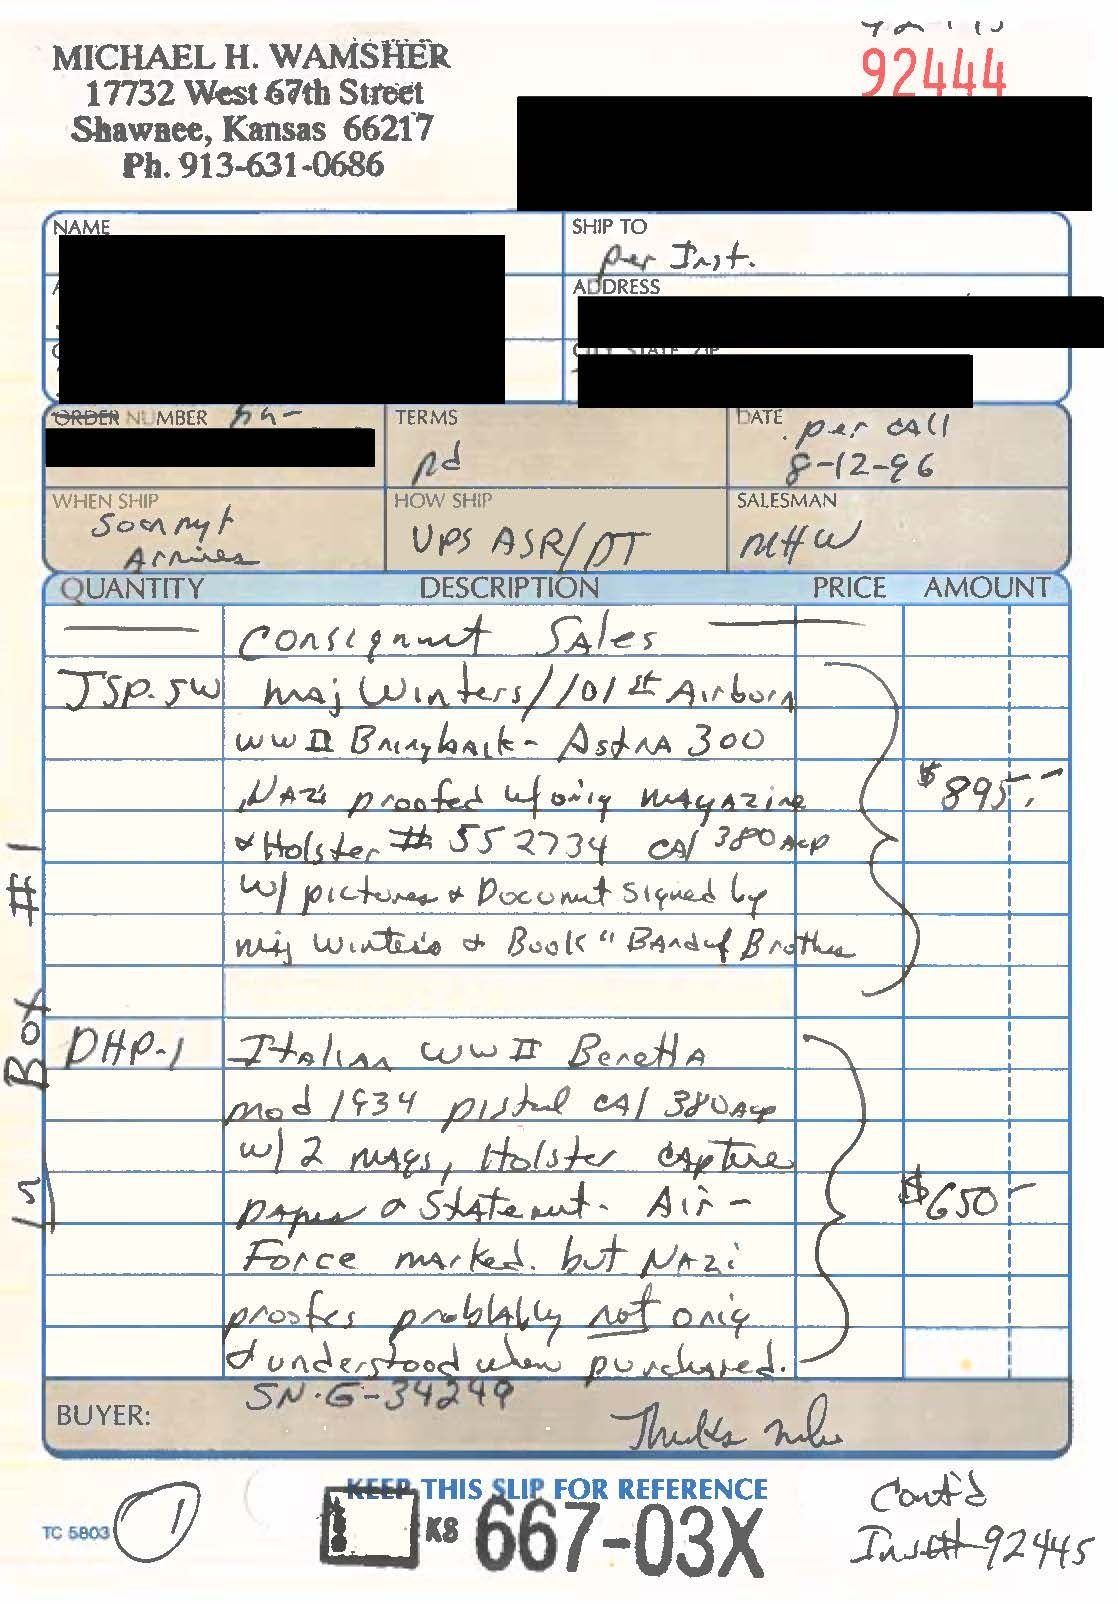 MICHAEL H. WAMSHER
17732 West 67th Street
Shawnee, Kansas 66217
Ph. 913-631-0686
92444
NAME
SHIP TO
per Inst.
ADDRESS
CITY, STATE, ZIP
ORDER NUMBER
TERMS
pd
DATE
per call
8-12-96
WHEN SHIP
Soon
Arrives
HOW SHIP
UPS ASR/PT
SALESMAN
MHW
QUANTITY DESCRIPTION PRICE AMOUNT
Consignmt Sales
JSP-5W Maj Winters//101st Airborn
WW II Bringback - Astra 300
Nazi proofed w/orig magazine $895.-
& Holster # 552734 cal 380 ACP
w/ pictures & Documt signed by
Maj Winters & Book "Band of Brothes
DHP-1 Italian WW II Beretta
mod 1934 pistol cal 380 ACP
w/ 2 mags, Holster capture
papes & Statemnt - Air - $650-
Force marked. but Nazi
proofes problably not orig
& understood when purchased.
SN. G-34249
BUYER:
Thanks Mike
In Box #1
KEEP THIS SLIP FOR REFERENCE
TC 5803
1
KS 667-03X
Cont'd
Inst# 92445